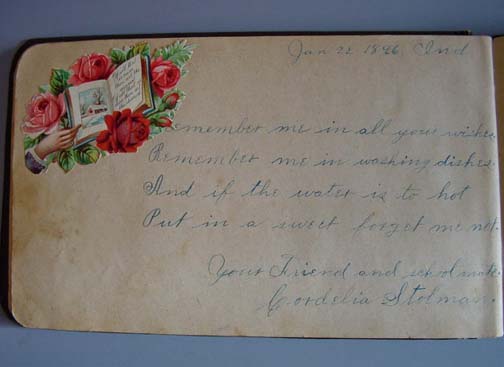 Jan 22 1896 Ind
Remember me in all your wishes
Remember me in washing dishes.
And if the water is to hot
Put in a sweet forget me not.
Your Friend and school mate.
Cordelia Stolman.